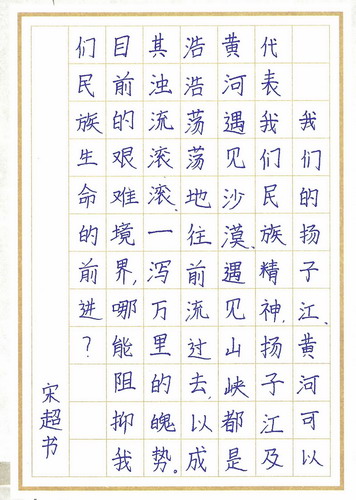 我们的扬子江、黄河可以
代表我们民族精神,扬子江及
黄河遇见沙漠、遇见山峡都是
浩浩荡荡地往前流过去,以成
其浊流滚滚、一泻万里的魄势。
目前的艰难境界,哪能阻抑我
们民族生命的前进?
宋超书